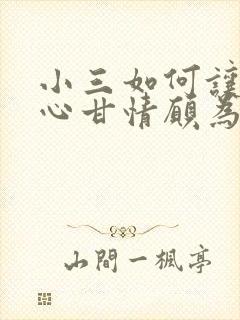 小三如何讓
心甘情願為
山間一楓亭